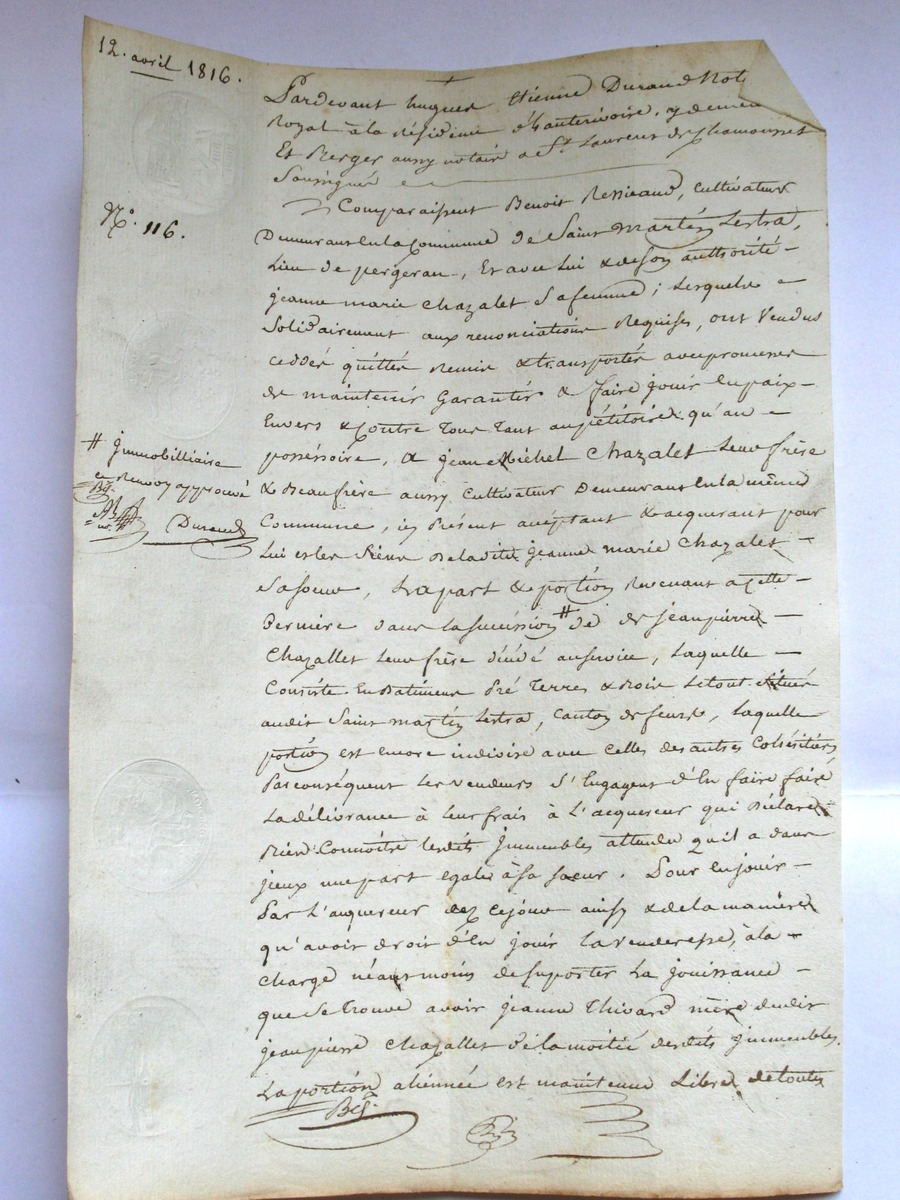 12. avril 1816.
Pardevant hugues Etienne Durand Not
Royal à la Résidence d'hauterivoire, y demeu
Et Berger aussy notaire a St. Laurent de Chamousset
Soussignés
N°. 116.
Comparaissent Benoit Ressicaud, Cultivateur
Demeurant en la Commune de Saint Martin Lestra,
Lieu de pergeran, Et avec Lui & de son authorité
jeanne marie Chazalet Sa femme; Lesquels
Solidairement aux renonciations Requises, ont Vendus
ceddé quittés Remis & transportés avec promesse
de maintenir Garantir & faire jouir En paix
Envers & Contre Tous Tant au pétitoire qu'au
possessoire, a jean Michel Chazalet Leur frère
& Beaufrère aussy Cultivateur Demeurant En la même
Commune, icy Présent acceptant & acquerant pour
Lui et les Siens De la ditte jeanne marie Chazalet
Sa soeur, La part & portion Revenant a Cette
Dernière dans la succession # de de jeanpierre
Chazallet Leur frère décédé au service, Laquelle
Consiste En Batiment Pré Terres & Bois Le tout situés
audit Saint martin Lestra, Canton de feurs, Laquelle
portion est encore indivise avec celles des autres Cohéritiers
Par conséquent Les vendeurs S'Engagent d'En faire faire
La délivrance à Leur frais à L'acquereur qui Déclare
Bien Connoitre lesdits Immeubles attendu qu'il a dans
jceux une part egale à sa soeur. Pour en jouir
Par L'acquereur dez cejour ainsy & de la manière
qu'avoit droit d'En jouir La venderesse, à la
charge néansmoins de suporter La jouissance
que Se trouve avoir jeanne Thivard mère dudit
jeanpierre Chazallet de la moitié desdits Immeubles.
La portion aliennée est maintenue Libre de toutes
# Immobilliaire
ce Renvoy approuvé
Durand